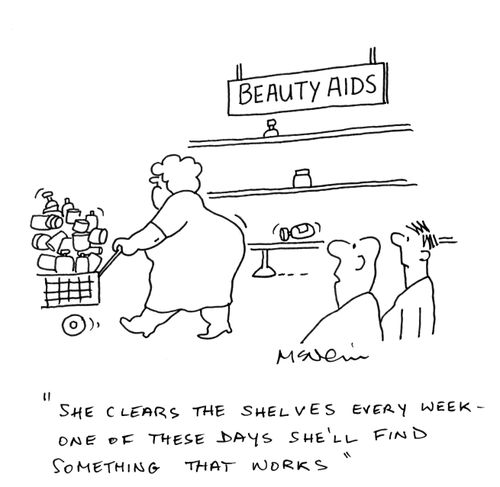 BEAUTY AIDS
"SHE CLEARS THE SHELVES EVERY WEEK-
ONE OF THESE DAYS SHE'LL FIND
SOMETHING THAT WORKS"